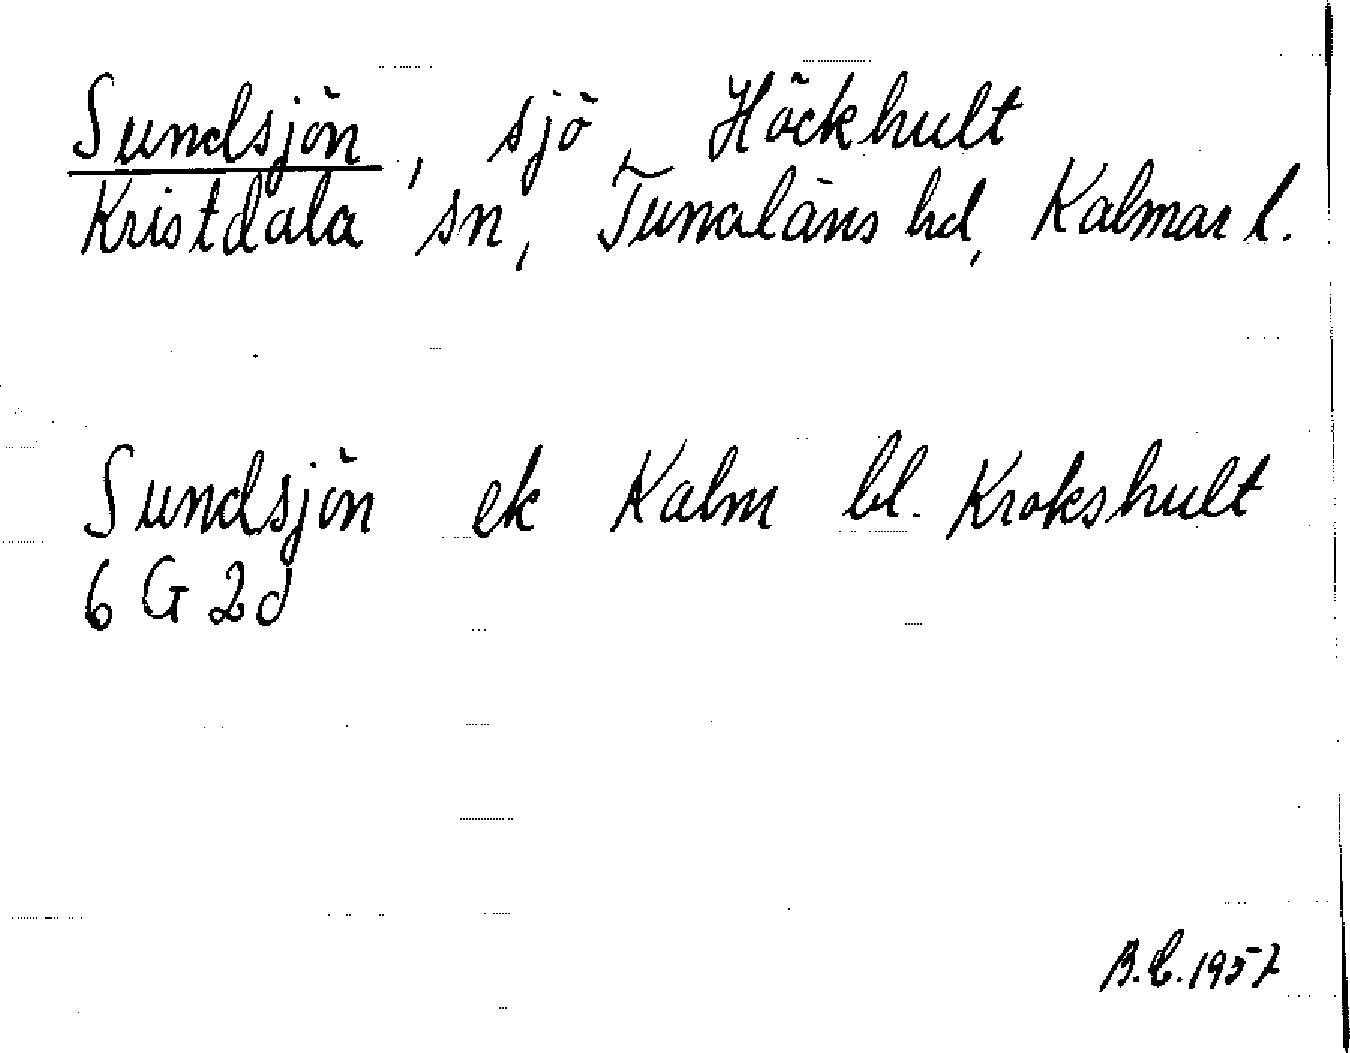 Sundsjön, sjö, Höckhult
Kristdala sn, Tunaläns hd, Kalmar l.
Sundsjön ek Kalm bl. Krokshult
6 G 2d
B.C. 1957